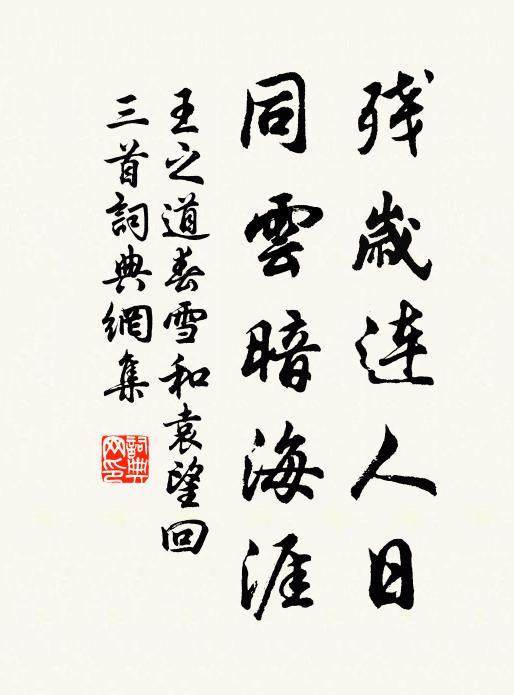 残歳连人日
同雲暗海涯
王之道春雪和袁望回
三首詞典網集
詞典
网印